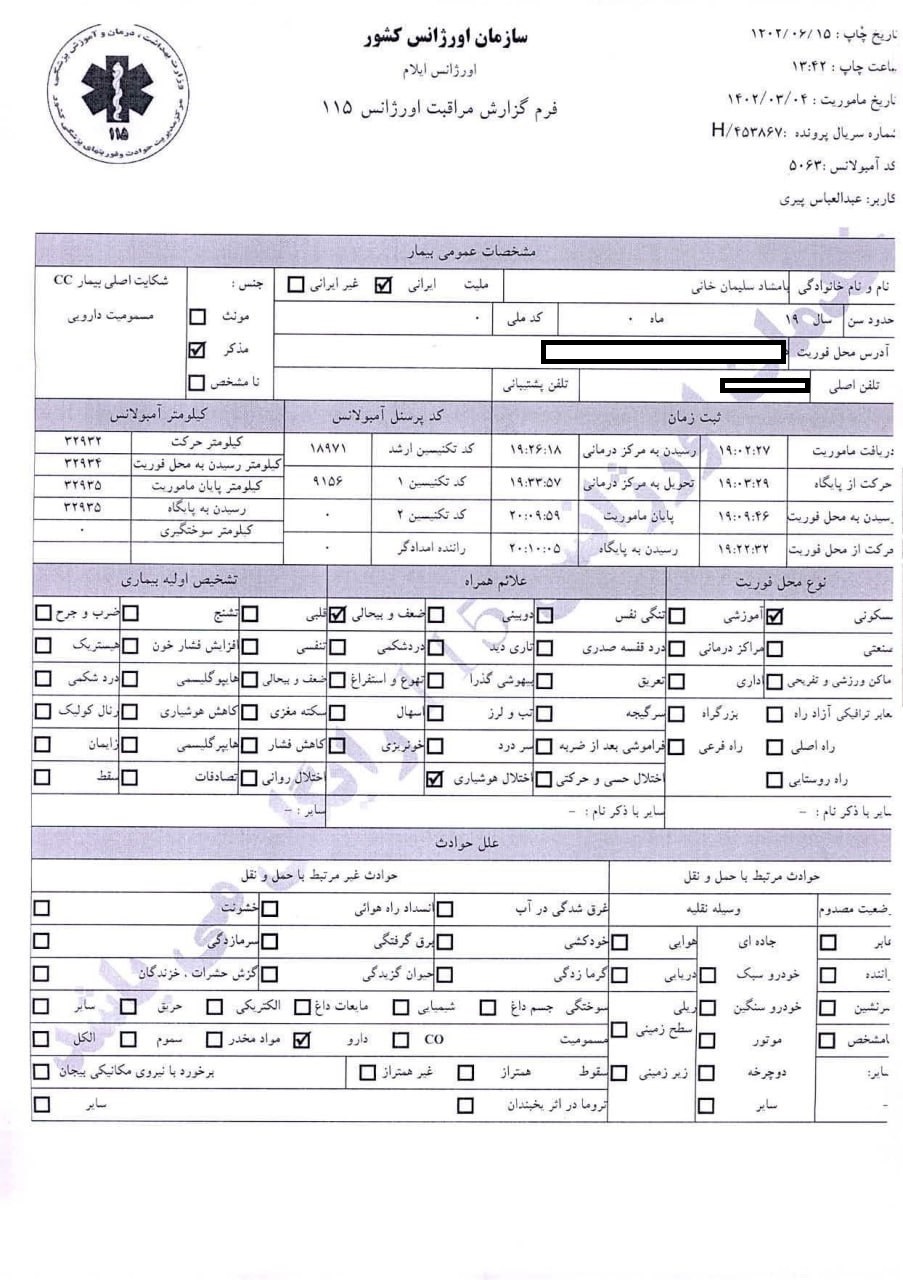 سازمان اورژانس کشور
اورژانس ایلام
فرم گزارش مراقبت اورژانس ۱۱۵
وزارت بهداشت، درمان و آموزش پزشکی
مرکز مدیریت حوادث و فوریتهای پزشکی کشور
۱۱۵
تاریخ چاپ : ۱۴۰۲/۰۶/۱۵
ساعت چاپ : ۱۳:۴۲
تاریخ ماموریت : ۱۴۰۲/۰۳/۰۴
شماره سریال پرونده :H/۴۵۳۸۶۷
کد آمبولانس :۵۰۶۳
کاربر: عبدالعباس پیری
مشخصات عمومی بیمار
نام و نام خانوادگی بامشاد سلیمان خانی ملیت ایرانی غیر ایرانی جنس : شکایت اصلی بیمار CC
حدود سن سال ۱۹ ماه ۰ کد ملی ۰ مونث مسمومیت دارویی
آدرس محل فوریت مذکر
تلفن اصلی تلفن پشتیبانی نا مشخص
ثبت زمان کد پرسنل آمبولانس کیلومتر آمبولانس
دریافت ماموریت ۱۹:۰۲:۲۷ رسیدن به مرکز درمانی ۱۹:۲۶:۱۸ کد تکنیسین ارشد ۱۸۹۷۱ کیلومتر حرکت ۳۲۹۳۲
کیلومتر رسیدن به محل فوریت ۳۲۹۳۴
حرکت از پایگاه ۱۹:۰۳:۲۹ تحویل به مرکز درمانی ۱۹:۳۳:۵۷ کد تکنیسین ۱ ۹۱۵۶ کیلومتر پایان ماموریت ۳۲۹۳۵
رسیدن به محل فوریت ۱۹:۰۹:۴۶ پایان ماموریت ۲۰:۰۹:۵۹ کد تکنیسین ۲ ۰ رسیدن به پایگاه ۳۲۹۳۵
کیلومتر سوختگیری ۰
حرکت از محل فوریت ۱۹:۲۲:۳۲ رسیدن به پایگاه ۲۰:۱۰:۰۵ راننده امدادگر ۰
نوع محل فوریت علائم همراه تشخیص اولیه بیماری
مسکونی آموزشی تنگی نفس دوبینی ضعف و بیحالی قلبی تشنج ضرب و جرح
صنعتی مراکز درمانی درد قفسه صدری تاری دید دردشکمی تنفسی افزایش فشار خون هیستریک
اماکن ورزشی و تفریحی اداری تعریق بیهوشی گذرا تهوع و استفراغ ضعف و بیحالی هایپوگلیسمی درد شکمی
معابر ترافیکی آزاد راه بزرگراه سرگیجه تب و لرز اسهال سکته مغزی کاهش هوشیاری رنال کولیک
راه اصلی راه فرعی فراموشی بعد از ضربه سر درد خونریزی کاهش فشار هایپرگلیسمی زایمان
راه روستایی اختلال حسی و حرکتی اختلال هوشیاری اختلال روانی تصادفات سقط
سایر با ذکر نام : - سایر با ذکر نام : - سایر : -
علل حوادث
حوادث مرتبط با حمل و نقل حوادث غیر مرتبط با حمل و نقل
وضعیت مصدوم وسیله نقلیه غرق شدگی در آب انسداد راه هوائی خشونت
عابر جاده ای هوایی خودکشی برق گرفتگی سرمازدگی
راننده خودرو سبک دریایی گرما زدگی حیوان گزیدگی گزش حشرات ، خزندگان
سرنشین خودرو سنگین ریلی سوختگی جسم داغ شیمیایی مایعات داغ الکتریکی حریق سایر
نامشخص موتور سطح زمینی مسمومیت CO دارو مواد مخدر سموم الکل
سایر: دوچرخه زیر زمینی سقوط همتراز غیر همتراز برخورد با نیروی مکانیکی بیجان
- سایر تروما در اثر یخبندان سایر